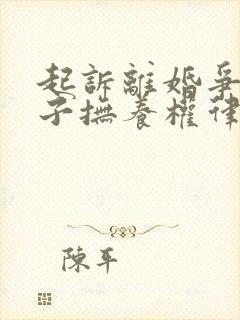 起訴離婚爭
子撫養權律
陳平